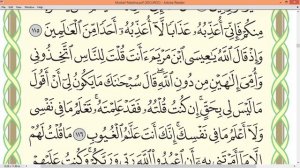 مِنكُمْ فَإِنِّىٓ أُعَذِّبُهُۥ عَذَابًا لَّآ أُعَذِّبُهُۥٓ أَحَدًا مِّنَ ٱلْعَٰلَمِينَ ١١٥
وَإِذْ قَالَ ٱللَّهُ يَٰعِيسَى ٱبْنَ مَرْيَمَ ءَأَنتَ قُلْتَ لِلنَّاسِ ٱتَّخِذُونِى
وَأُمِّىَ إِلَٰهَيْنِ مِن دُونِ ٱللَّهِ قَالَ سُبْحَٰنَكَ مَا يَكُونُ لِىٓ أَنْ أَقُولَ
مَا لَيْسَ لِى بِحَقٍّ إِن كُنتُ قُلْتُهُۥ فَقَدْ عَلِمْتَهُۥ تَعْلَمُ مَا فِى نَفْسِى
وَلَآ أَعْلَمُ مَا فِى نَفْسِكَ إِنَّكَ أَنتَ عَلَّٰمُ ٱلْغُيُوبِ ١١٦ مَا قُلْتُ لَهُمْ
إِلَّا مَآ أَمَرْتَنِى بِهِۦٓ أَنِ ٱعْبُدُوا۟ ٱللَّهَ رَبِّى وَرَبَّكُمْ وَكُنتُ عَلَيْهِمْ